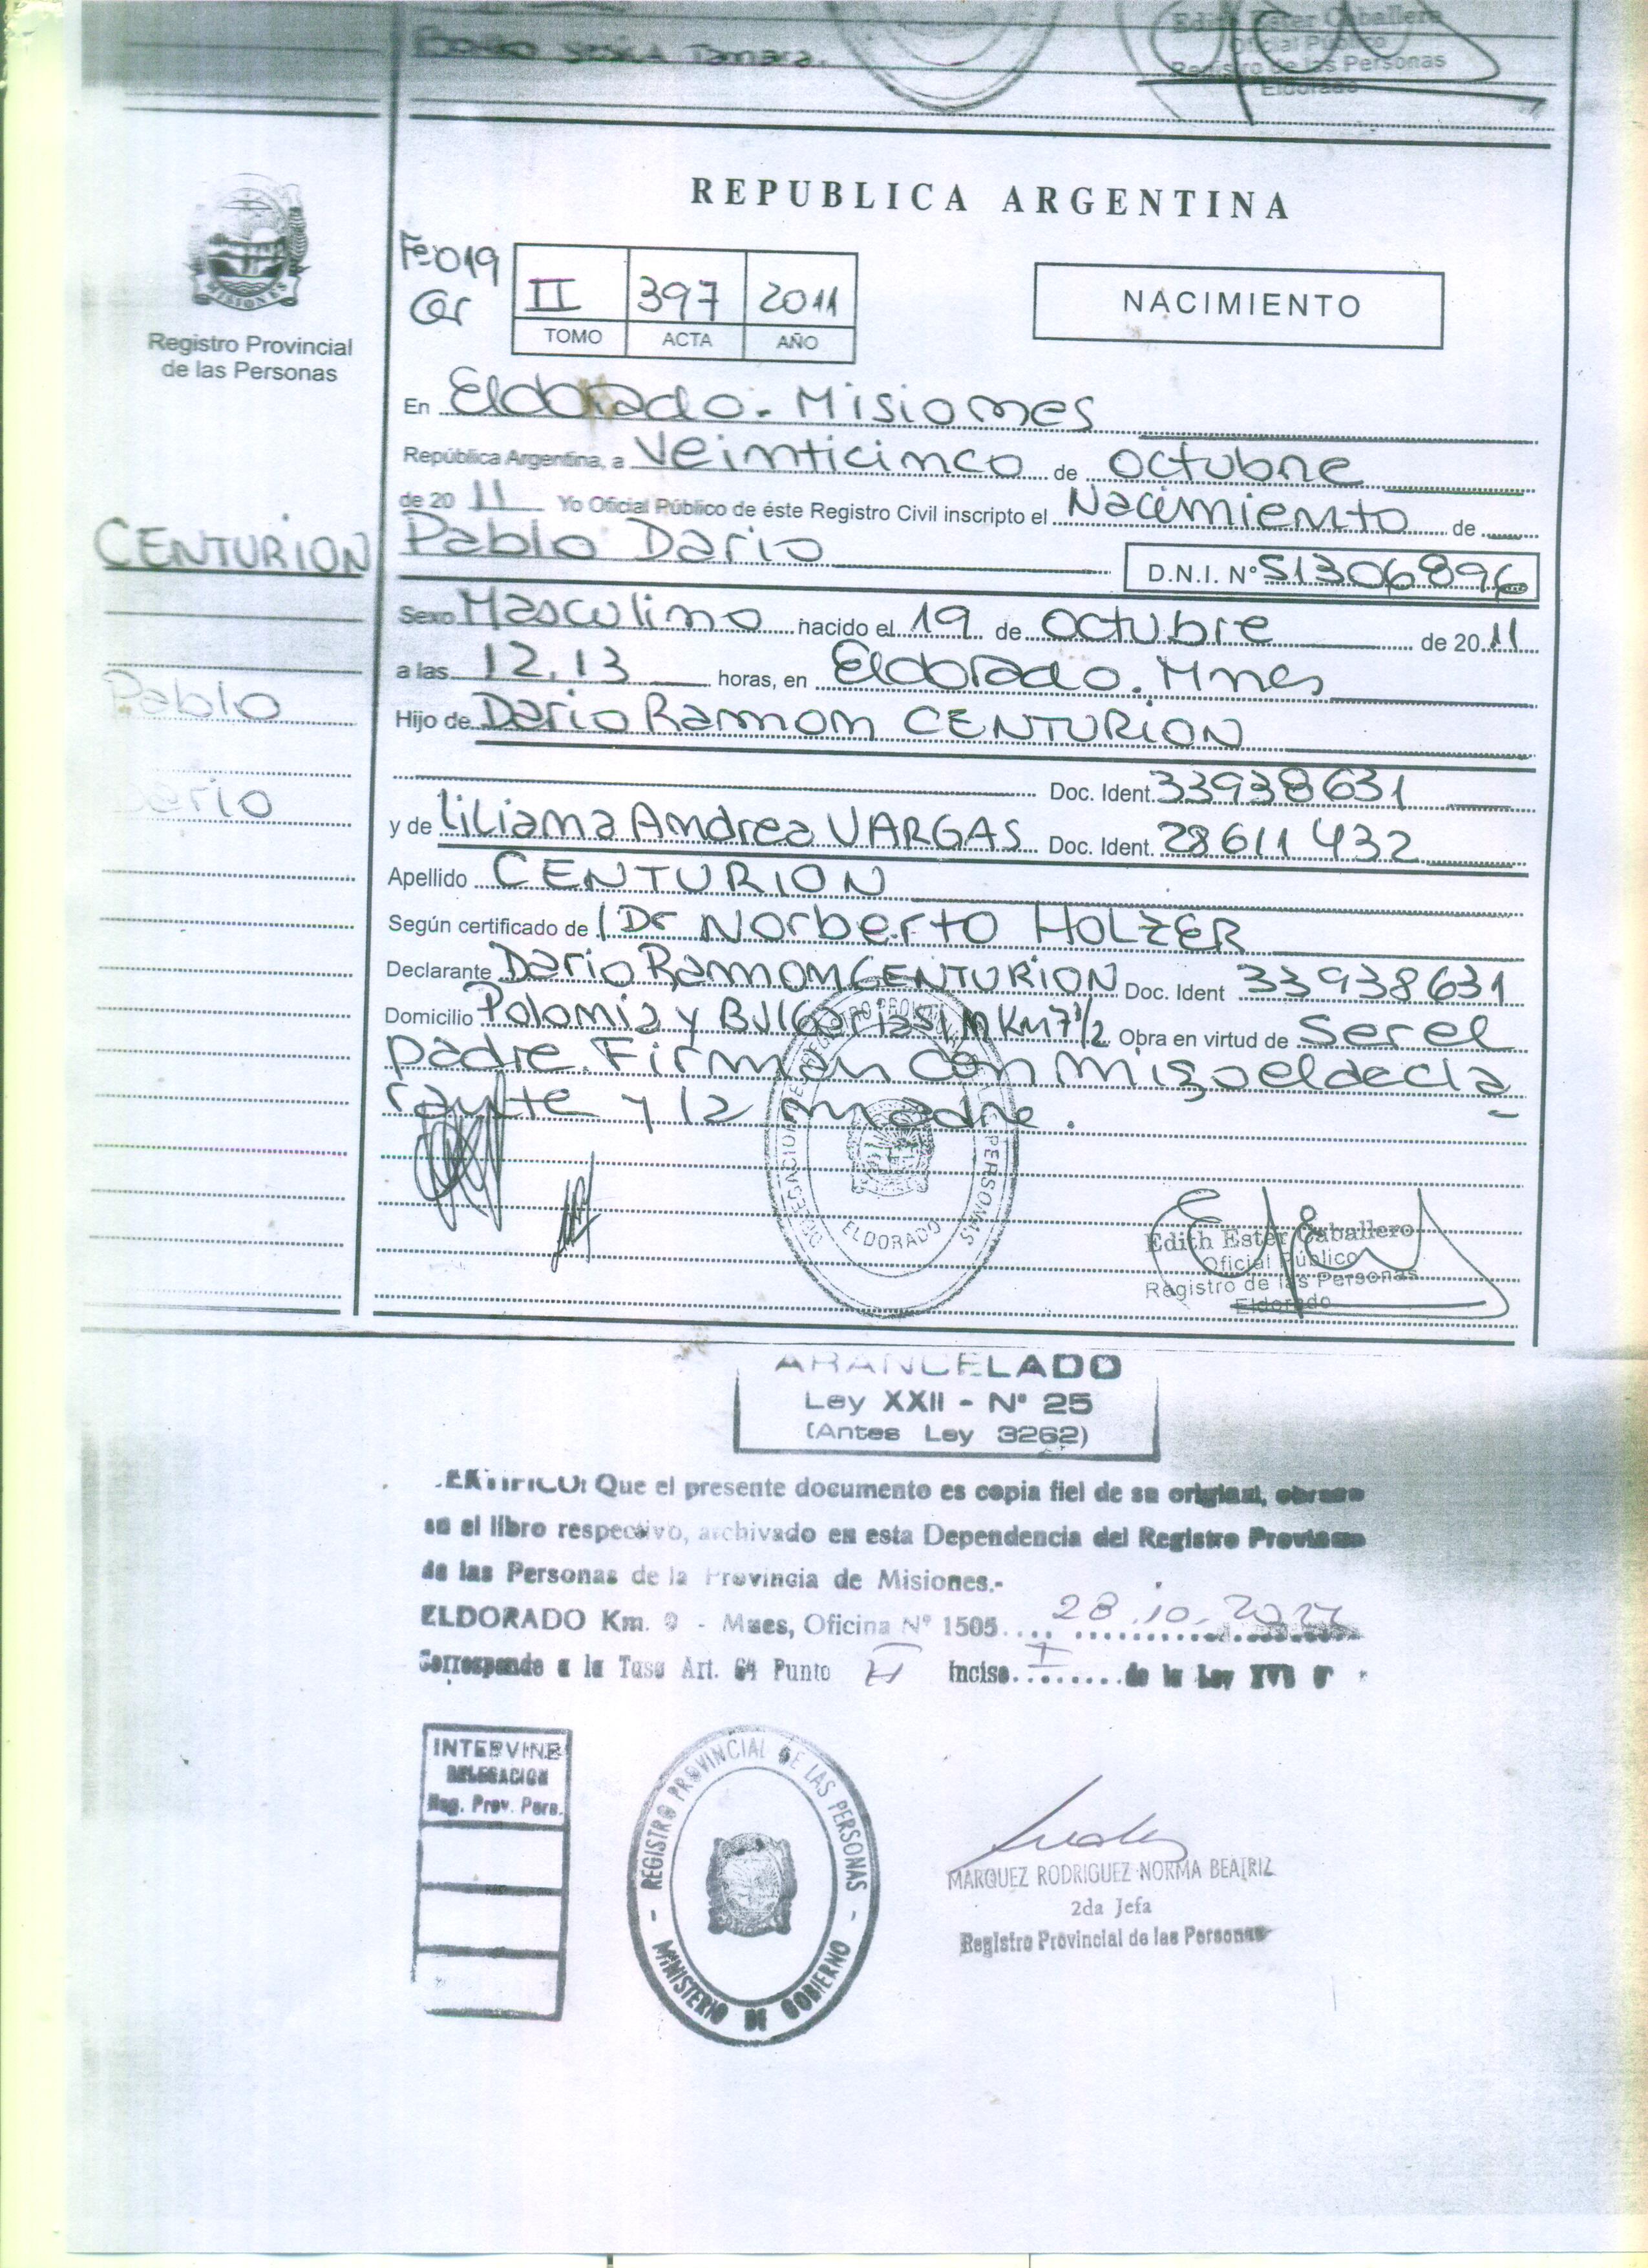 Tamara.
Edith Ester Caballero
Oficial Público
Registro de las Personas
Eldorado
MISIONES
Registro Provincial
de las Personas
REPUBLICA ARGENTINA
Fº019
II 397 2011
TOMO ACTA AÑO
NACIMIENTO
En Eldorado. Misiones
República Argentina, a Veinticinco de octubre
de 2011 Yo Oficial Público de éste Registro Civil inscripto el Nacimiento de
CENTURION Pablo Dario D.N.I. Nº 51306896
Sexo Masculino nacido el 19 de octubre de 2011
a las 12,13 horas, en Eldorado. Mnes
Pablo
Hijo de Dario Ramon CENTURION
Doc. Ident. 33938631
Dario
y de Liliana Andrea VARGAS Doc. Ident. 28611432
Apellido CENTURION
Según certificado de l Dr Norberto HOLZER
Declarante Dario Ramon CENTURION Doc. Ident 33938631
Domicilio Polonia y Km 7 Obra en virtud de Ser el
padre. Firman con migo el decla
rante y la madre.
REGISTRO PROVINCIAL DE LAS PERSONAS
ELDORADO
Edith Ester Caballero
Oficial Público
Registro de las Personas
Eldorado
ARANCELADO
Ley XXII - Nº 25
(Antes Ley 3262)
CERTIFICO: Que el presente documento es copia fiel de su original, obrante
en el libro respectivo, archivado en esta Dependencia del Registro Provincial
de las Personas de la Provincia de Misiones.-
ELDORADO Km. 9 - Mnes, Oficina Nº 1505.... 28.10.2024
Corresponde a la Tasa Art. 64 Punto II Inciso. I de la Ley XVII
INTERVINE
DELEGACION
Reg. Prov. Pers.
REGISTRO PROVINCIAL DE LAS PERSONAS
- MINISTERIO DE GOBIERNO -
MARQUEZ RODRIGUEZ NORMA BEATRIZ
2da Jefa
Registro Provincial de las Personas